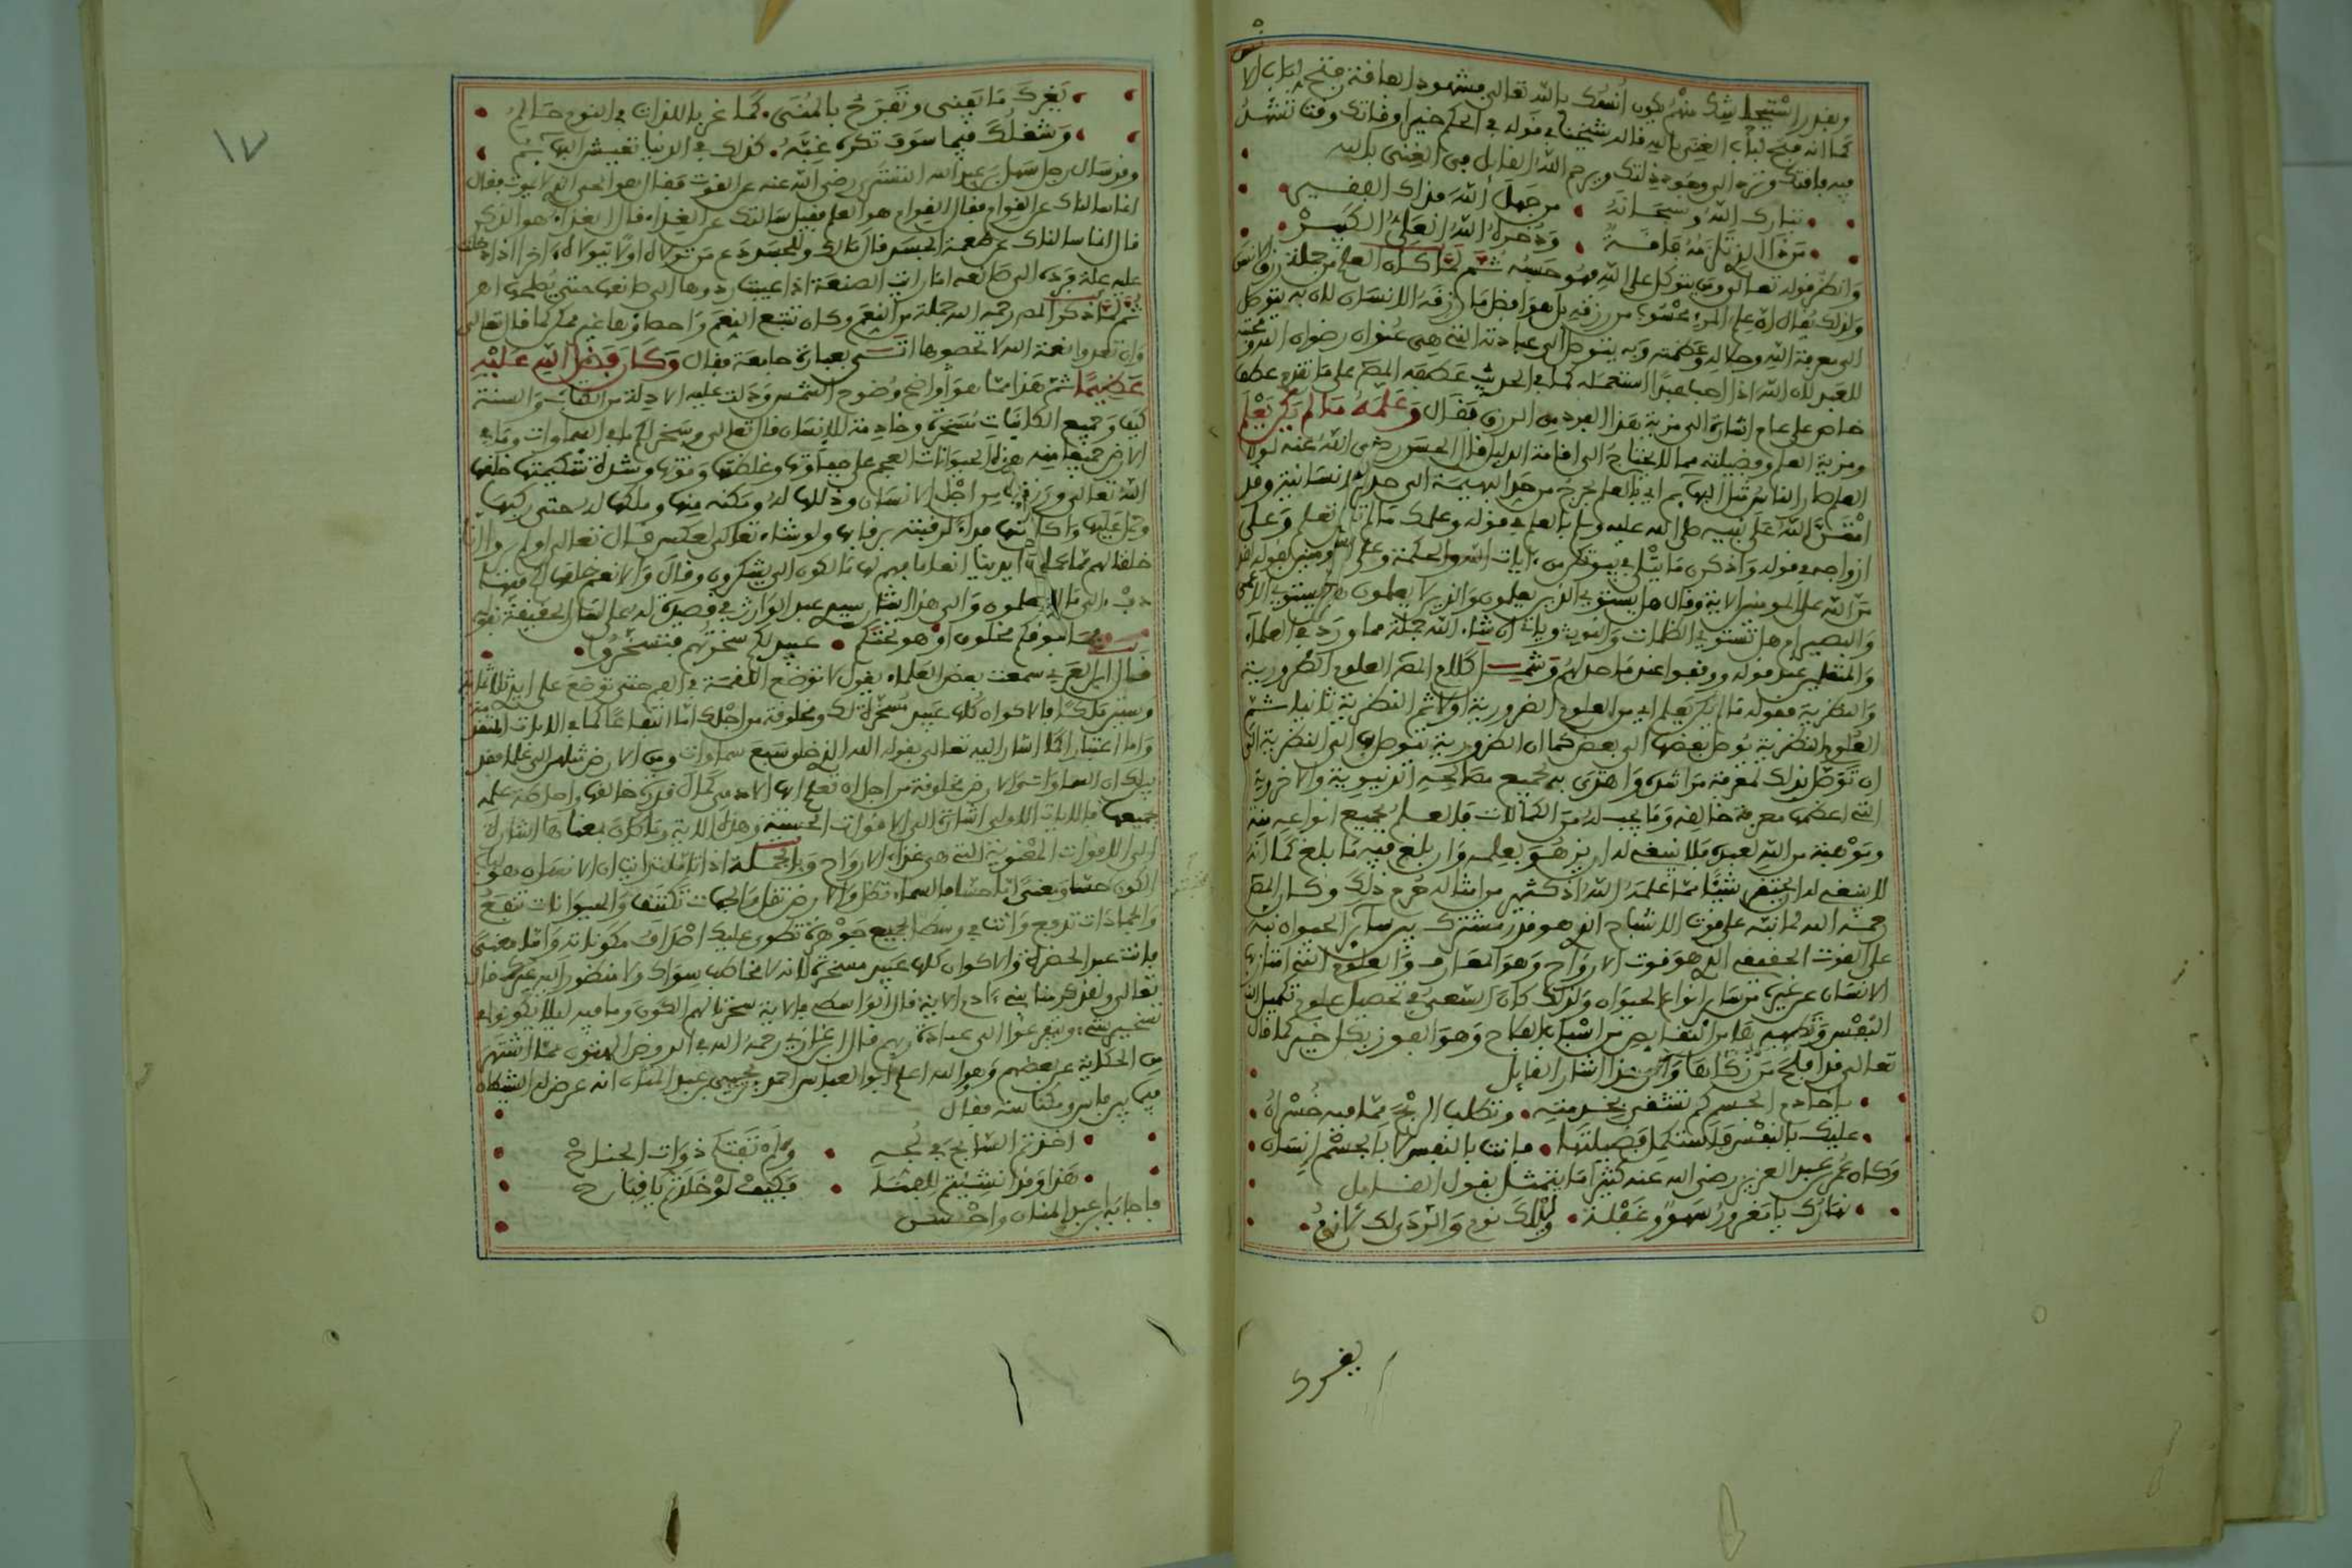 وبقدر استيحاشك منهم يكون أنسك بالله تعالى فشهود الفاقة فتح لباب الأنس
كما انه فتح لباب الغنى بالله قال شيخنا في قوله في الحكم خير اوقاتك وقت تشهد
فيه فاقتك وترد الى وجود ذلتك ويرحم الله القايل في الغنى بالله
تبارك الله وسبحانه من جهل الله فذاك الفقير
من ذا الذي تلزمه فاقة وذخره الله العلي الكبير
وانظر قوله تعالى ومن يتوكل على الله فهو حسبه ثم لما كان العلم من جملة رزق الانسان
ولذلك يقال ان علم المرء محسوب من رزقه بل هو افضل ما رزقه الانسان لان به يتوصل
الى معرفة الله وجلاله وعظمته وبه يتوصل الى عبادته التي هي عنوان رضوان الله ومحبته
للعبد لان الله اذا احب عبدا استعمله كما في الحديث عطفه المص على ما تقدم عطف
خاص على عام اشارة الى مزية هذا الفرد من الرزق فقال وعلمه ما لم يكن يعلم
ومزية العلم وفضيلته مما لا يحتاج الى اقامة الدليل قال الحسن رضي الله عنه لولا
العلم لصار الناس مثل البهايم اي بالعلم يخرج من حد البهيمة الى حد الانسانية وقد
امتن الله على نبيه صلى الله عليه وسلم بالعلم في قوله وعلمك ما لم تكن تعلم وعلى
ازواجه في قوله واذكرن ما يتلى في بيوتكن من آيات الله والحكمة وعلى المومنين بقوله لقد
من الله على المومنين الاية وقال هل يستوي الذين يعلمون والذين لا يعلمون هل يستوي الاعمى
والبصير ام هل تستوي الظلمات والنور وياتي ان شاء الله جملة مما ورد في العلماء
والمتعلمين عند قوله ووقفوا عند ما حد لهم وشمل كلام المص العلوم الضرورية
والنظرية فقوله ما لم يكن يعلم اي من العلوم الضرورية اولا ثم النظرية ثانيا ثم
العلوم النظرية يوصل بعضها الى بعض كما ان الضرورية يتوصل بها الى النظرية الى
ان توصل بذلك لمعرفة مراشده واهتدى به لجميع مصالحه الدنيوية والاخروية
التي اعظمها معرفة خالقه وما يجب له من الكمالات فالعلم بجميع انواعه منة
وموهبة من الله لعبده فلا ينبغي له ان يزهو بعلمه وان بلغ فيه ما بلغ كما انه
لا ينبغي له ان يحتقر شيئا مما علمه الله اذ كثير من امثاله حرم ذلك وكان المص
رحمه الله لما نبه على قوت الاشباح الذي هو قدر مشترك بين ساير الحيوان نبه
على القوت الحقيقي الذي هو قوت الارواح وهو المعارف والعلوم التي امتاز بها
الانسان عن غيره من ساير انواع الحيوان ولذلك كان السعي في تحصيل علوم تكميل
النفس وتطهيرها من النقايص من اسباب الفلاح وهو الفوز بكل خير كما قال
تعالى قد افلح من زكاها والى هذا اشار القايل
يا خادم الجسم كم تشقى بخدمته وتطلب الربح مما فيه خسران
عليك بالنفس فاستكمل فضيلتها فانت بالنفس لا بالجسم انسان
وكان عمر بن عبد العزيز رضي الله عنه كثيرا ما يتمثل بقول القايل
نهارك يا مغرور سهو وغفلة وليلك نوم والردى لك لازم
يغرك
١٧
يغرك ما يفنى وتفرح بالمنى كما غر باللذات في النوم حالم
وشغلك فيما سوف تكره غبه كذلك في الدنيا تعيش البهايم
وقد سال رجل سهل بن عبد الله التستري رضي الله عنه عن القوت فقال هو الحي الذي لا يموت فقال
انما سالتك عن القوام فقال القوام هو العلم فقيل سالتك عن الغذاء قال الغذاء هو الذكر
قال انما سالتك عن طعمة الجسد قال مالك وللجسد دع من تولاه اولا يتولاه آخرا اذا دخلت
عليه علة فرده الى صانعه اما رايت الصنعة اذا عيبت ردوها الى صانعها حتى يصلحها اهـ
ثم لما ذكر المص رحمه الله جملة من النعم وكان تتبع النعم واحصاؤها غير ممكن كما قال تعالى
وان تعدوا نعمة الله لا تحصوها اتى بعبارة جامعة فقال وكان فضل الله عليه
عظيما ثم هذا مما هو واضح وضوح الشمس ودلت عليه الادلة من الكتاب والسنة
كيف وجميع الكاينات مسخرة وخادمة للانسان قال تعالى وسخر لكم ما في السماوات وما في
الارض جميعا منه هذه الحيوانات العجم على جفاوتها وغلظتها وقوتها وشدة شكيمتها خلقها
الله تعالى ورزقها من اجل الانسان وذللها له ومكنه منها وملكها له حتى ركبها
وحمل عليها واكل منها فداء لرقبته برقابها ولو شاء تعالى لعكس قال تعالى اولم يروا انا
خلقنا لهم مما عملت ايدينا انعاما فهم لها مالكون الى يشكرون وقال والانعام خلقها لكم فيها
دفء الى ما لا تعلمون والى هذا اشار سيدي عبد الوارث في قصيدة له على لسان الحقيقة بقوله
فما فوقكم مخلوق او هو تحتكم عبيد لكم سخرتهم فتسخروا
قال ابن العربي سمعت بعض العلماء يقول لا توضع اللقمة في الفم حتى توضع على ايدي ثلاثماية
وستين ملكا فالاكوان كلها عبيد مسخرة لك ومخلوقة من اجلك اما انتفاعا كما في الايات المتقدمة
واما اعتبارا كما اشار اليه تعالى بقوله الله الذي خلق سبع سماوات ومن الارض مثلهن الى علما فقد
بين لك ان السماوات والارض مخلوقة من اجل ان تعلم ايها الادمي كمال قدرة خالقها واحاطة علمه
بجميعها فالايات الاولى اشارة الى الاقوات الحسية وهذه الاية وما كان بمعناها اشارة
الى الاقوات المعنوية التي هي غذاء الارواح وبالجملة اذا تاملت رايت ان الانسان هو لب
الكون حسا ومعنى اما حسا فالسماء تظل والارض تقل والجهات تكتنف والحيوانات تنفع
والجمادات تدفع وانت في وسط الجميع جوهرة تطوى عليك اصداف مكوناته واما معنى
فانت عبد الحضرة والاكوان كلها عبيد مسخرة لانه لا مخاطب سواك ولا منظور اليه غيرك قال
تعالى ولقد كرمنا بني ءادم الاية قال الواسطي في الاية سخرنا لهم الكون وما فيه ليلا يكونوا في
تسخير شيء ويتفرغوا الى عبادة ربهم قال ابن غازي رحمه الله في الروض الهتون مما اشتهر
من الحكاية عن بعضهم وهو والله اعلم ابو العباس احمد بن يحيى بن عبد المنان انه عرض له الشكاه
فيما بين فاس ومكناسة فقال
اخذتم السابح في لجه ولم تفتكم ذوات الجناح
هذا وقد انشيتم للفنا فكيف لو خلدتم يا قباح
فاجابه ابن عبد المنان واحسن